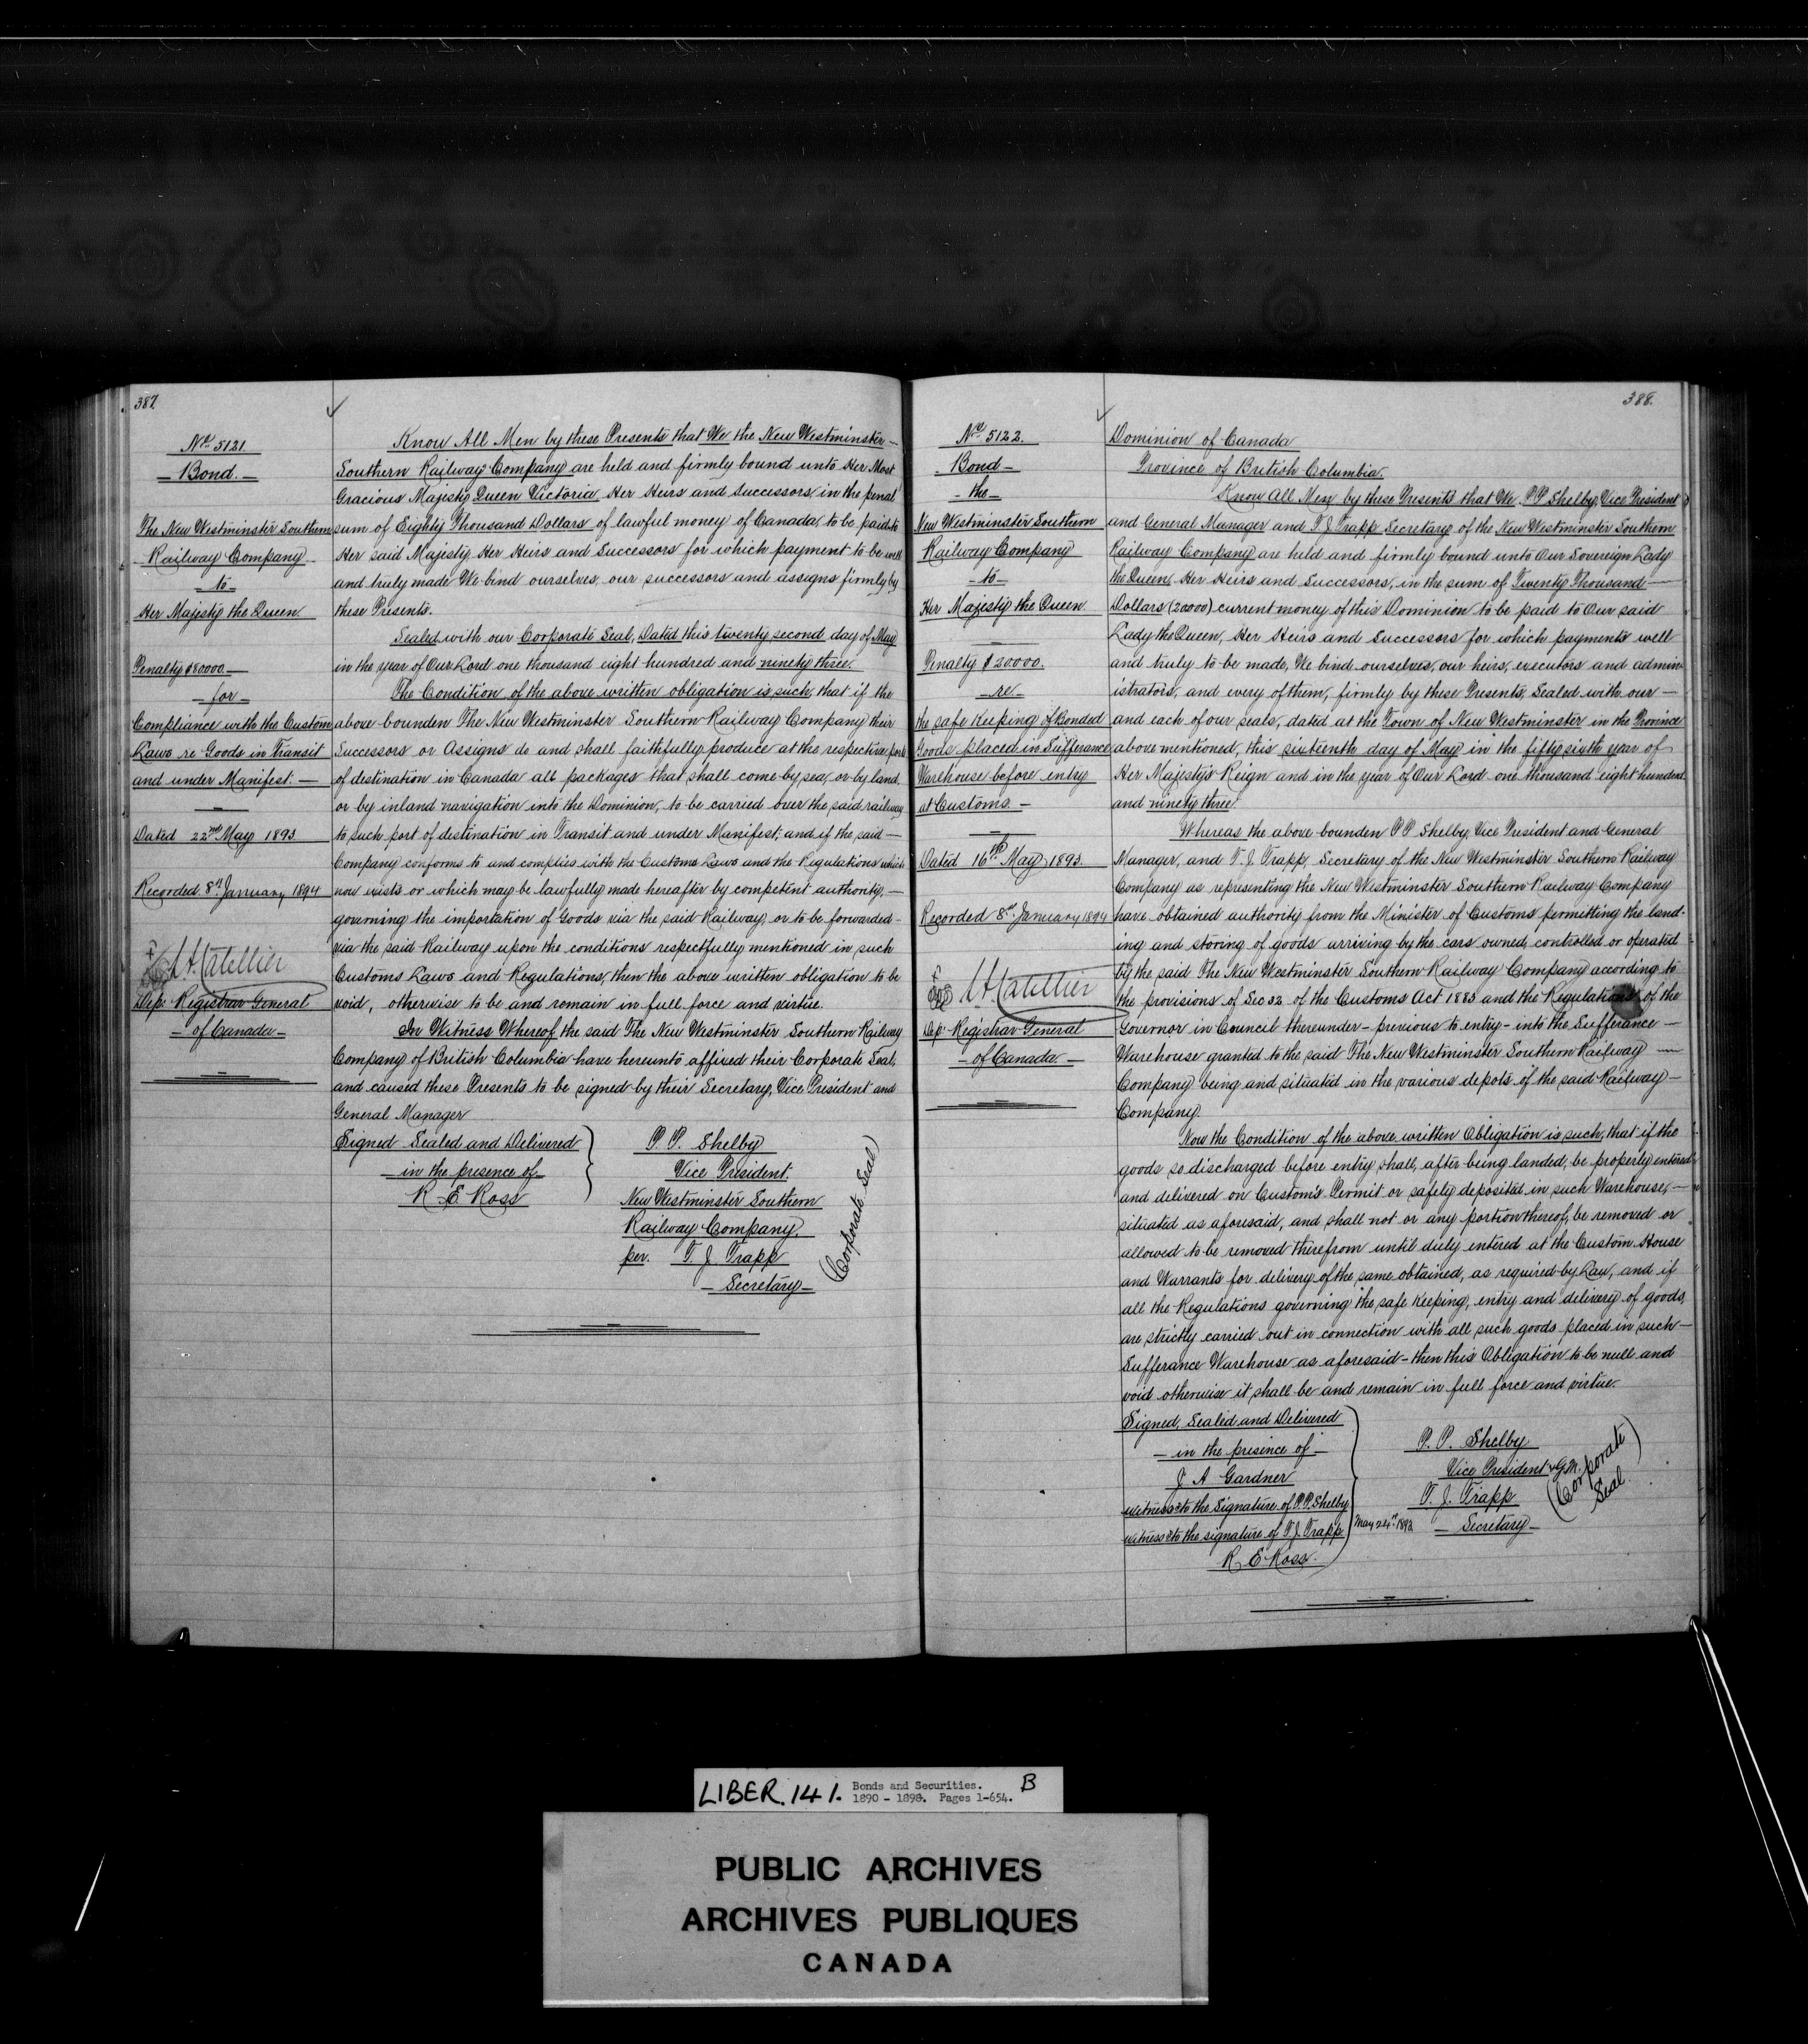 387.
No. 5121.
Bond.
The New Westminster Southern
Railway Company
to
Her Majesty the Queen
Penalty $80000.
for
Compliance with the Custom
Laws re Goods in Transit
and under Manifest.
Dated 22nd May 1893
Recorded 8th January 1894
Dep: Registrar General
of Canada
Know All Men by these Presents that We the New Westminster
Southern Railway Company are held and firmly bound unto Her Most
Gracious Majesty Queen Victoria Her Heirs and Successors in the penal
sum of Eighty Thousand Dollars of lawful money of Canada, to be paid to
Her said Majesty Her Heirs and Successors for which payment to be well
and truly made We bind ourselves our successors and assigns firmly by
these Presents.
Sealed with our Corporate Seal, Dated this twenty second day of May
in the year of Our Lord one thousand eight hundred and ninety three.
The Condition of the above written obligation is such, that if the
above bounden The New Westminster Southern Railway Company their
Successors or Assigns do and shall faithfully produce at the respective ports
of destination in Canada all packages that shall come by sea, or by land,
or by inland navigation into the Dominion, to be carried over the said railway
to such port of destination in Transit and under Manifest; and if the said
Company conforms to and complies with the Customs Laws and the Regulations which
now exists or which may be lawfully made hereafter by competent authority,
governing the importation of Goods via the said Railway, or to be forwarded
via the said Railway upon the conditions respectfully mentioned in such
Customs Laws and Regulations, then the above written obligation to be
void, otherwise to be and remain in full force and virtue.
In Witness Whereof the said The New Westminster Southern Railway
Company of British Columbia have hereunto affixed their Corporate Seal,
and caused these Presents to be signed by their Secretary, Vice President and
General Manager
Signed Sealed and Delivered
in the presence of
R E Ross
P. P. Shelby
Vice President.
New Westminster Southern
Railway Company.
per. T. J Trapp
Secretary
(Corporate Seal)
388.
No. 5122.
Bond
the
New Westminster Southern
Railway Company
to
Her Majesty the Queen
Penalty $20000.
re
the safe Keeping of Bonded
Goods placed in Sufferance
Warehouse before entry
at Customs.
Dated 16th May 1893.
Recorded 8th January 1894
Dep: Registrar General
of Canada
Dominion of Canada
Province of British Columbia.
Know All Men by these Presents that We P.P Shelby, Vice President
and General Manager and T J Trapp Secretary of the New Westminster Southern
Railway Company are held and firmly bound unto Our Sovereign Lady
the Queen, Her Heirs and Successors, in the sum of Twenty Thousand
Dollars (20000) current money of this Dominion to be paid to Our said
Lady the Queen, Her Heirs and Successors for which payments well
and truly to be made, We bind ourselves, our heirs, executors and admin-
istrators, and every of them, firmly by these Presents, Sealed with our
and each of our seals, dated at the Town of New Westminster in the Province
above mentioned, this sixteenth day of May in the fifty sixth year of
Her Majesty's Reign and in the year of Our Lord one thousand eight hundred
and ninety three.
Whereas the above bounden P P Shelby, Vice President and General
Manager, and T. J. Trapp, Secretary of the New Westminster Southern Railway
Company as representing the New Westminster Southern Railway Company
have obtained authority from the Minister of Customs permitting the land-
ing and storing of goods arriving by the cars owned, controlled or operated
by the said The New Westminster Southern Railway Company according to
the provisions of Sec 32 of the Customs Act 1883 and the Regulations of the
Governor in Council thereunder - previous to entry - into the Sufferance
Warehouse granted to the said The New Westminster Southern Railway
Company being and situated in the various depots of the said Railway
Company.
Now the Condition of the above written Obligation is such, that if the
goods so discharged before entry shall, after being landed, be properly entered
and delivered on Custom's Permit or safely deposited in such Warehouse,
situated as aforesaid, and shall not or any portion thereof, be removed or
allowed to be removed therefrom until duly entered at the Custom House
and Warrants for delivery of the same obtained, as required by Law, and if
all the Regulations governing the safe keeping, entry and delivery of goods,
are strictly carried out in connection with all such goods placed in such
Sufferance Warehouse as aforesaid - then this Obligation to be null and
void otherwise it shall be and remain in full force and virtue.
Signed, Sealed and Delivered
in the presence of
J A Gardner
witness to the Signature of P.P. Shelby
witness to the signature of T J. Trapp
R E Ross.
May 24th 1893
P. P. Shelby
Vice President & G.M.
T. J. Trapp
Secretary
(Corporate
Seal)
LIBER. 141. Bonds and Securities. B
1890 - 1898. Pages 1-654.
PUBLIC ARCHIVES
ARCHIVES PUBLIQUES
CANADA